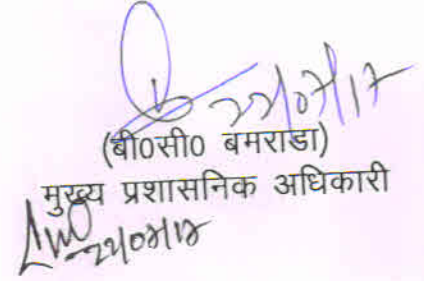 22/07/17
(बी0सी0 बमराडा)
मुख्य प्रशासनिक अधिकारी